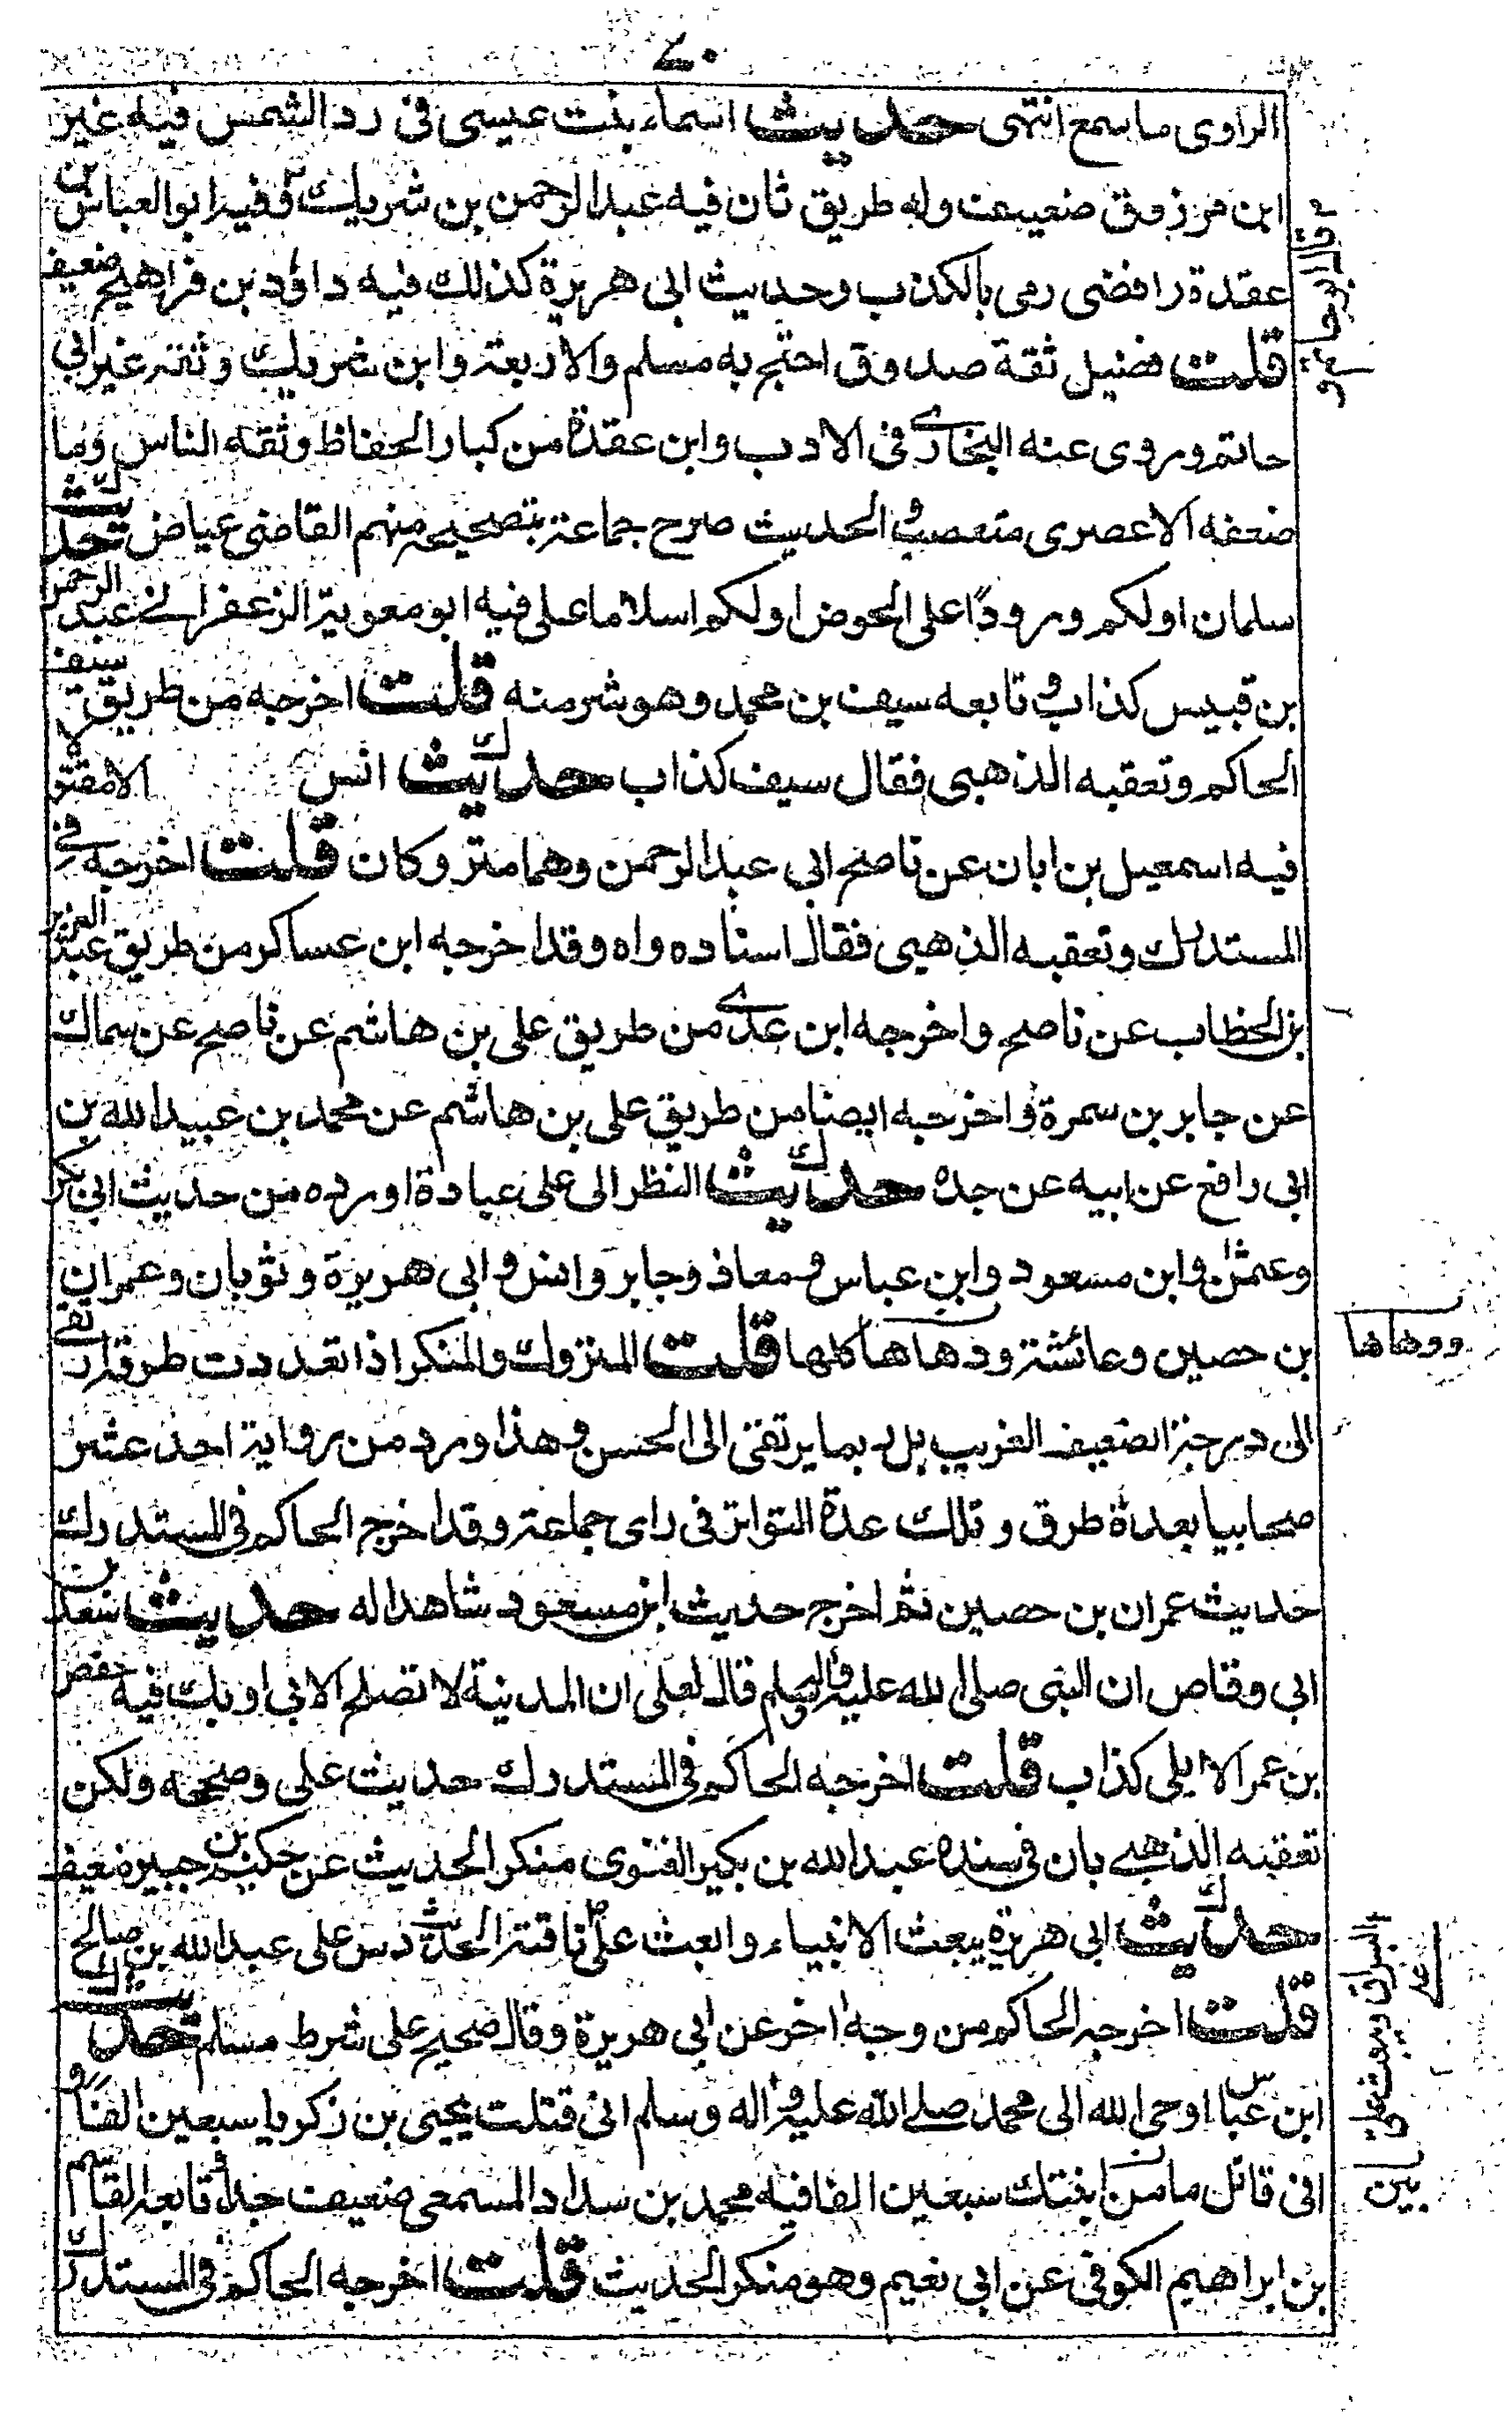 ٧٠
الراوى ما سمع انتهى حديث اسماء بنت عيسى فى رد الشمس فيه غير
ابن مرزوق ضعيف وله طريق ثان فيه عبد الرحمن بن شريك وفيه ابو العباس بن
عقدة رافضى رمى بالكذب وحديث ابى هريرة كذلك فيه داؤد بن فراهيج ضعيف
قلت فضيل ثقة صدوق احتج به مسلم والاربعة وابن شريك وثقه غير ابى
حاتم وروى عنه البخارى فى الادب وابن عقدة من كبار الحفاظ وثقه الناس وما
ضعفه الا عصرى متعصب والحديث صرح جماعة بتصحيحه منهم القاضى عياض حديث
سلمان اولكم ورودًا على الحوض اولكم اسلاما على فيه ابو معوية الزعفرانى عبد الرحمن
بن قبيس كذاب وتابعه سيف بن محمد وهو شر منه قلت اخرجه من طريق سيف
الحاكم وتعقبه الذهبى فقال سيف كذاب حديث انس لا الامقتو
فيه اسمعيل بن ابان عن ناصح ابى عبد الرحمن وهما متروكان قلت اخرجه فى
المستدرك وتعقبه الذهبى فقال اسناده واه وقد اخرجه ابن عساكر من طريق عبد العزيز
بن الخطاب عن ناصح واخرجه ابن عدى من طريق على بن هاشم عن ناصح عن سماك
عن جابر بن سمرة واخرجه ايضا من طريق على بن هاشم عن محمد بن عبيد الله بن
ابى رافع عن ابيه عن جده حديث النظر الى على عبادة اورده من حديث ابى بكر
وعثمن وابن مسعود وابن عباس ومعاذ وجابر وانس وابى هريرة وثوبان وعمران
بن حصين وعائشة ودهاها كلها قلت المتروك والمنكر اذا تعددت طرقه ارتقى
الى درجة الضعيف الغريب بل ربما يرتقى الى الحسن وهذا ورد من رواية احد عشر
صحابيا بعدة طرق وتلك عدة التواتر فى راى جماعة وقد اخرج الحاكم فى المستدرك
حديث عمران بن حصين ثم اخرج حديث ابن مسعود شاهدا له حديث سعد بن
ابى وقاص ان النبى صلى الله عليه واله وسلم قال لعلى ان المدينة لا تصلح الا بى او بك فيه حفص
بن عمر الايلى كذاب قلت اخرجه الحاكم فى المستدرك حديث على وصححه ولكن
تعقبه الذهبى بان فى سنده عبد الله بن بكير الغنوى منكر الحديث عن حكيم بن جبير ضعيف
حديث ابى هريرة يبعث الانبياء وابعث على ناقته الحديث دس على عبد الله بن صالح
قلت اخرجه الحاكم من وجه اخر عن ابى هريرة وقال صحيح على شرط مسلم حديث
ابن عباس اوحى الله الى محمد صلى الله عليه واله وسلم انى قتلت يحيى بن زكريا سبعين الفا و
انى قاتل مامن ابنتك سبعين الفا فيه محمد بن سداد المسمعى ضعيف جدا وتابعه القاسم
بن ابراهيم الكوفى عن ابى نعيم وهو منكر الحديث قلت اخرجه الحاكم فى المستدرك
ووهاها
البراق ويبعث على
بين